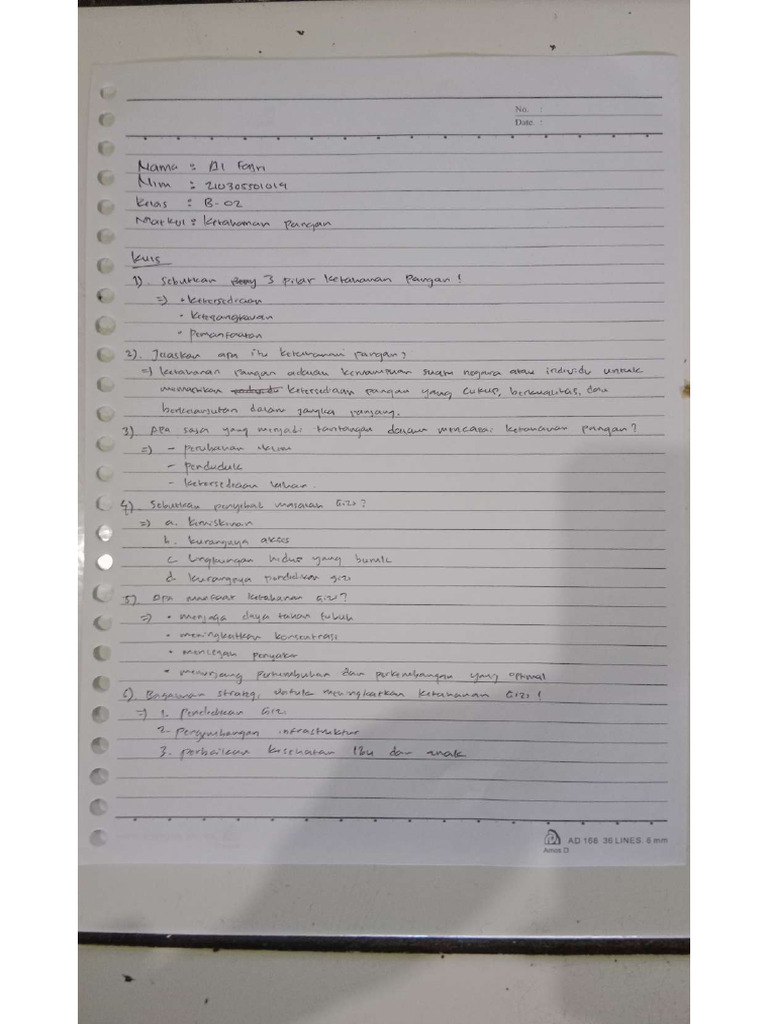 No. :
Date :
Nama : Al Fajri
Nim : 210305501019
Kelas : B-02
Matkul : Ketahanan pangan
Kuis
1). Sebutkan 3 pilar ketahanan pangan!
=> • ketersediaan
• keterjangkauan
• pemanfaatan
2). Jelaskan apa itu ketahanan pangan?
=> ketahanan pangan adalah kemampuan suatu negara atau individu untuk
memastikan ketersediaan pangan yang cukup, berkualitas, dan
berkelanjutan dalam jangka panjang.
3). Apa saja yang menjadi tantangan dalam mencapai ketahanan pangan?
=> - perubahan iklim
- penduduk
- ketersediaan lahan.
4). Sebutkan penyebab masalah Gizi?
=> a. kemiskinan
b. kurangnya akses
c. lingkungan hidup yang buruk
d. kurangnya pendidikan gizi
5). Apa manfaat ketahanan Gizi?
=> • menjaga daya tahan tubuh
• meningkatkan konsentrasi
• mencegah penyakit
• menunjang pertumbuhan dan perkembangan yang optimal
6). Bagaiman strategi untuk meningkatkan ketahanan Gizi!
=> 1. pendidikan Gizi
2. pengembangan infrastruktur
3. perbaikan kesehatan Ibu dan anak
AD 168 36 LINES. 6 mm